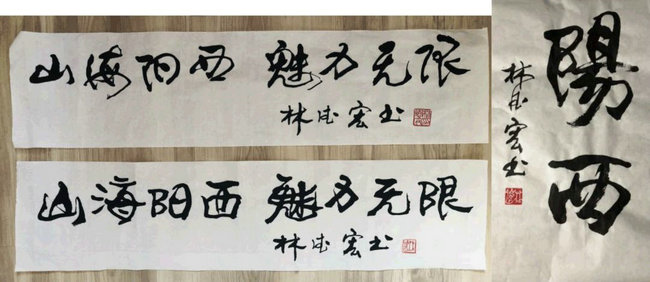 山海阳西 魅力无限
林成宏书
山海阳西 魅力无限
林成宏书
陽西
林成宏书